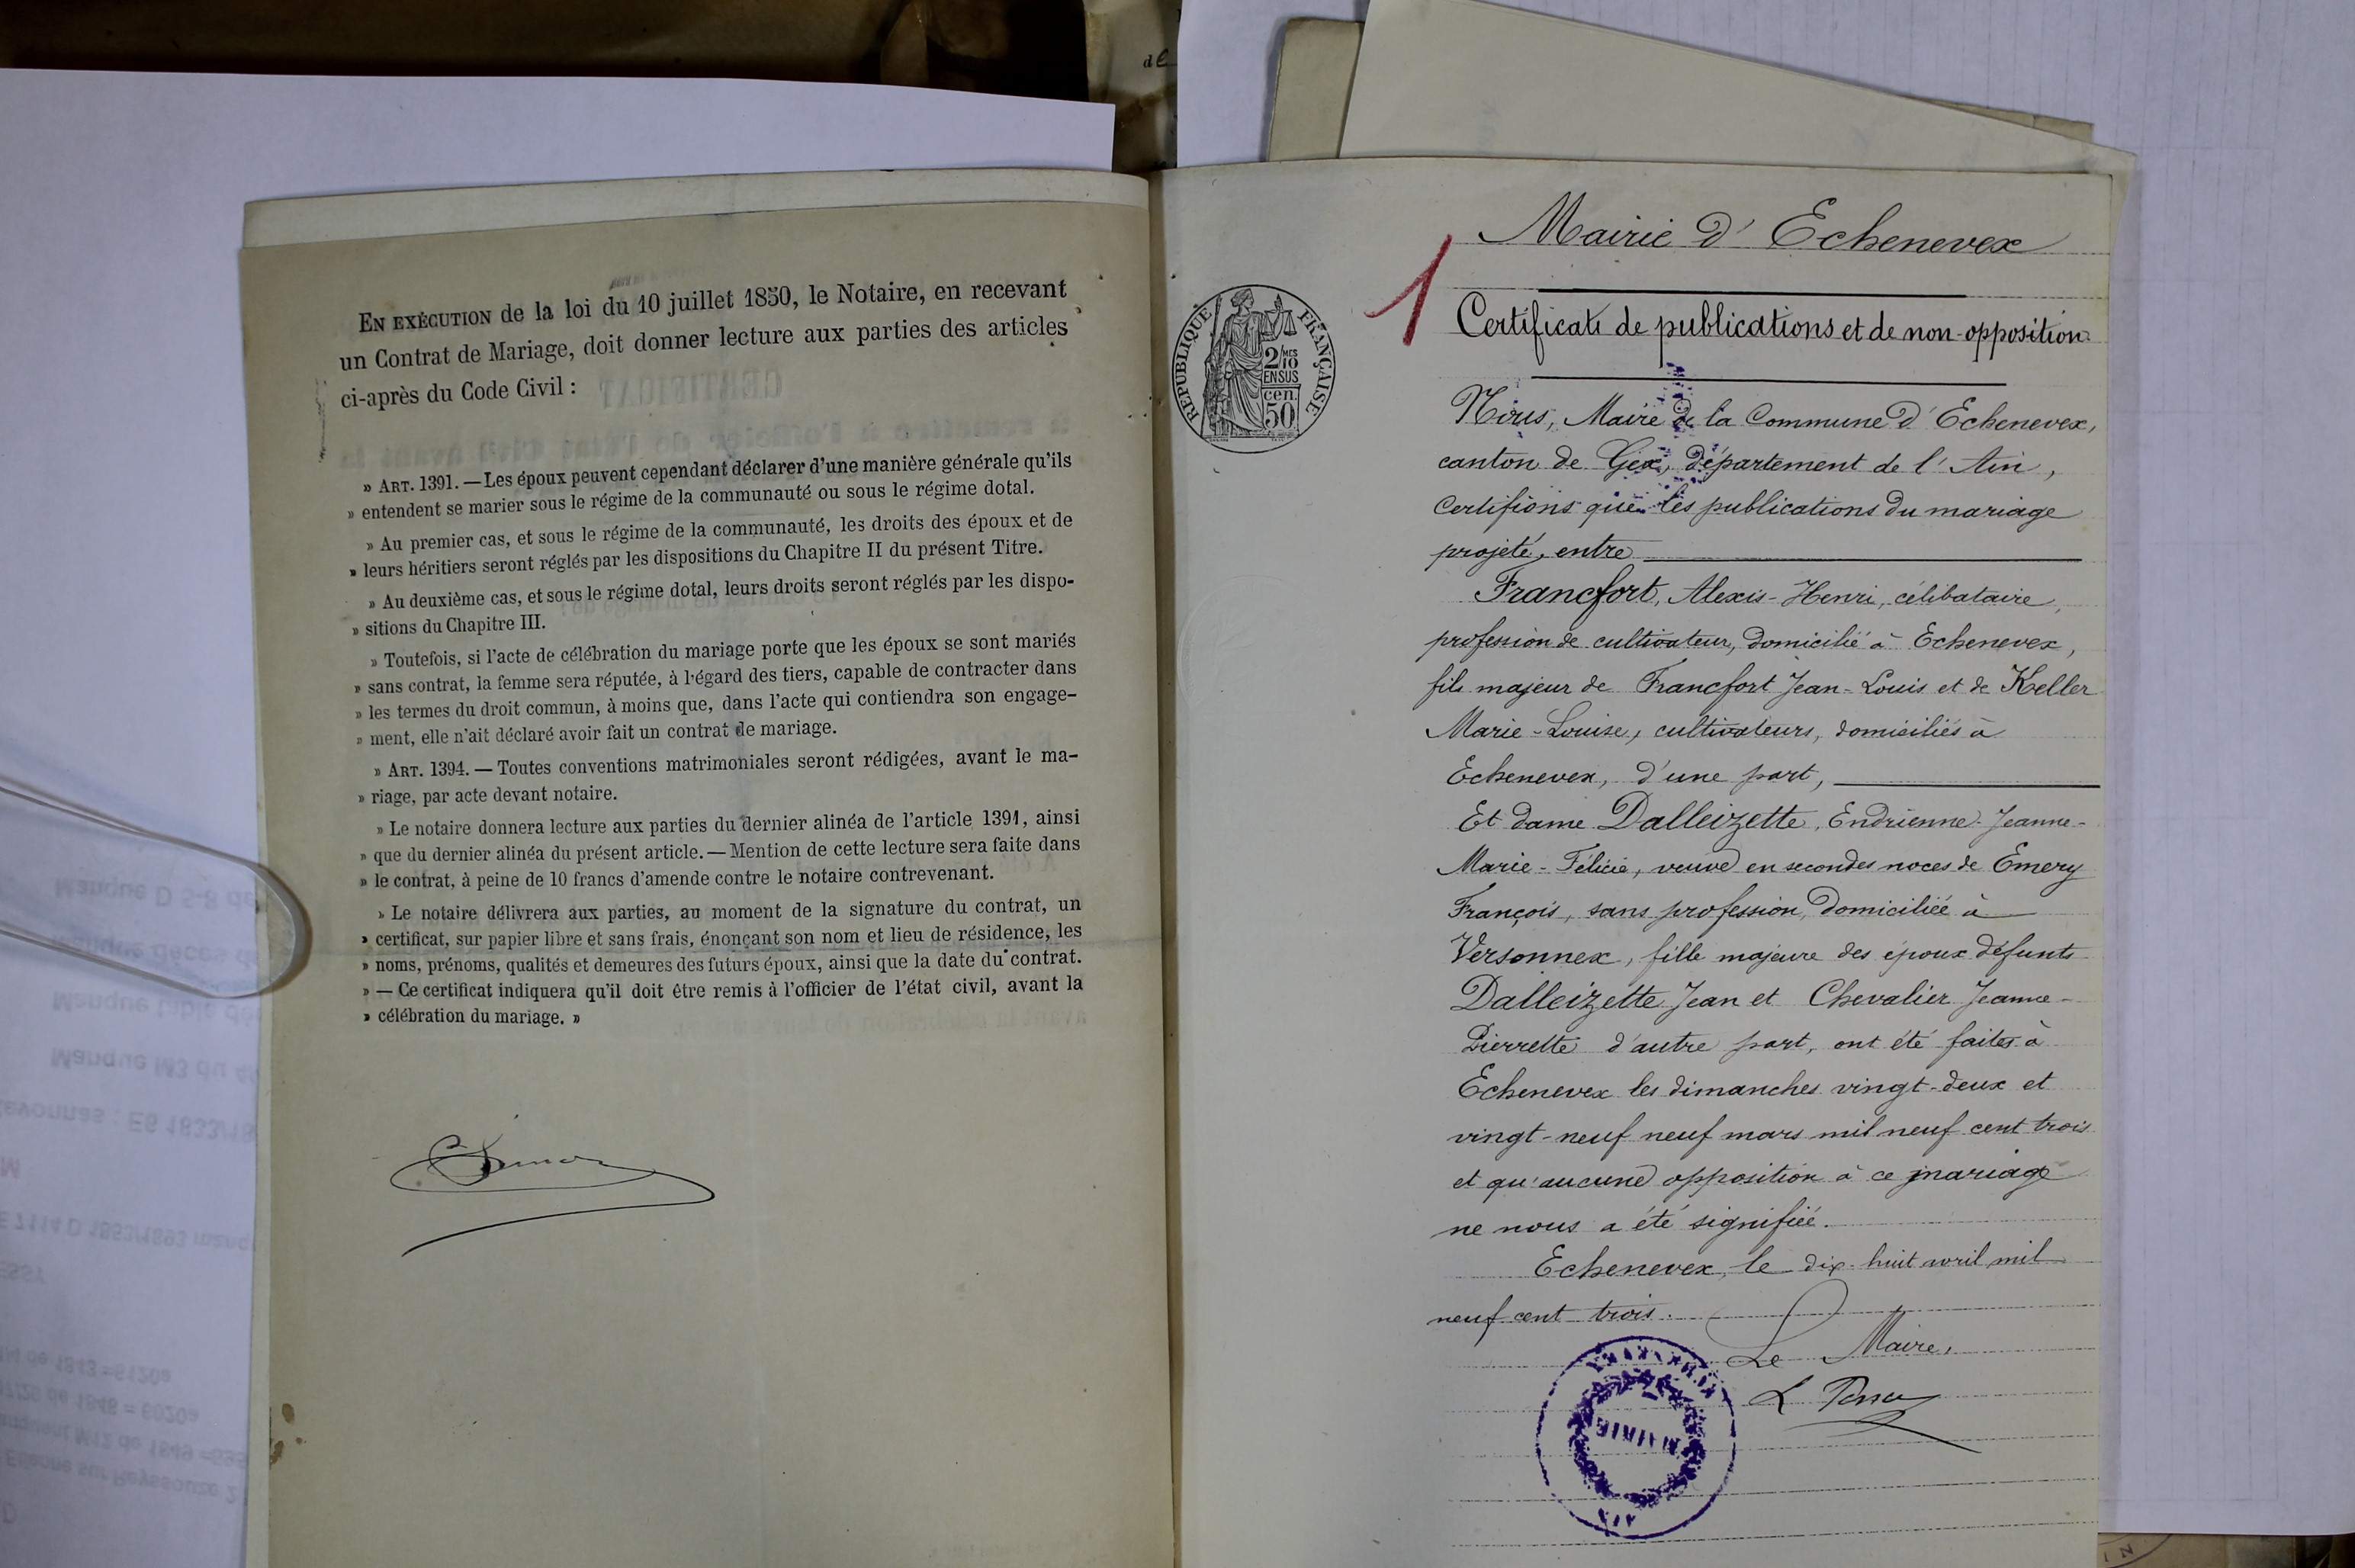 EN EXÉCUTION de la loi du 10 juillet 1850, le Notaire, en recevant
un Contrat de Mariage, doit donner lecture aux parties des articles
ci-après du Code Civil :
» ART. 1391. — Les époux peuvent cependant déclarer d'une manière générale qu'ils
» entendent se marier sous le régime de la communauté ou sous le régime dotal.
» Au premier cas, et sous le régime de la communauté, les droits des époux et de
» leurs héritiers seront réglés par les dispositions du Chapitre II du présent Titre.
» Au deuxième cas, et sous le régime dotal, leurs droits seront réglés par les dispo-
» sitions du Chapitre III.
» Toutefois, si l'acte de célébration du mariage porte que les époux se sont mariés
» sans contrat, la femme sera réputée, à l'égard des tiers, capable de contracter dans
» les termes du droit commun, à moins que, dans l'acte qui contiendra son engage-
» ment, elle n'ait déclaré avoir fait un contrat de mariage.
» ART. 1394. — Toutes conventions matrimoniales seront rédigées, avant le ma-
» riage, par acte devant notaire.
» Le notaire donnera lecture aux parties du dernier alinéa de l'article 1391, ainsi
» que du dernier alinéa du présent article. — Mention de cette lecture sera faite dans
» le contrat, à peine de 10 francs d'amende contre le notaire contrevenant.
» Le notaire délivrera aux parties, au moment de la signature du contrat, un
» certificat, sur papier libre et sans frais, énonçant son nom et lieu de résidence, les
» noms, prénoms, qualités et demeures des futurs époux, ainsi que la date du contrat.
» — Ce certificat indiquera qu'il doit être remis à l'officier de l'état civil, avant la
» célébration du mariage. »
1
RÉPUBLIQUE FRANÇAISE
2/10 MES
EN SUS
cen.
50
Mairie d'Echenevex
Certificat de publications et de non-opposition
Nous, Maire de la Commune d'Echenevex,
canton de Gex, département de l'Ain,
Certifions que les publications du mariage
projeté, entre
Francfort, Alexis-Henri, célibataire,
profession de cultivateur, domicilié à Echenevex,
fils majeur de Francfort Jean-Louis et de Keller
Marie-Louise, cultivateurs, domiciliés à
Echenevex, d'une part,
Et dame Dalleizette, Endrienne-Jeanne-
Marie-Félicie, veuve en secondes noces de Emery
François, sans profession, domiciliée à
Versonnex, fille majeure des époux défunts
Dalleizette Jean et Chevalier Jeanne-
Pierrette d'autre part, ont été faites à
Echenevex les dimanches vingt-deux et
vingt-neuf neuf mars mil neuf cent trois
et qu'aucune opposition à ce mariage
ne nous a été signifiée.
Echenevex, le dix-huit avril mil
neuf cent trois.
Le Maire,
MAIRIE